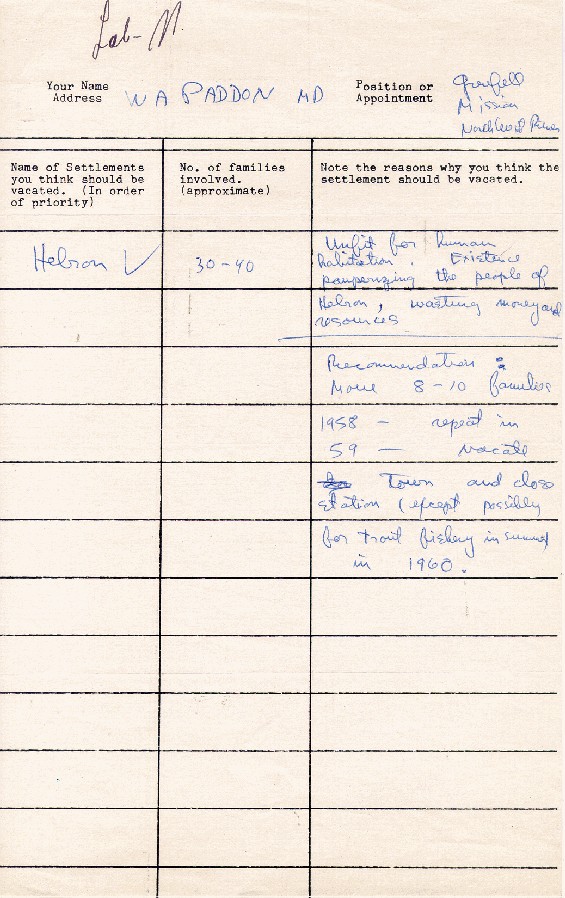 Lab- N.
Your Name
Address
W A PADDON MD
Position or
Appointment
Grenfell
Mission
North West River
Name of Settlements
you think should be
vacated. (In order
of priority)
No. of families
involved.
(approximate)
Note the reasons why you think the
settlement should be vacated.
Hebron √
30-40
Unfit for human
habitation. Existence
pauperizing the people of
Hebron, wasting money and
resources
Recommendation :
Move 8-10 families
1958 - repeat in
59 - vacate
Town and close
station (except possibly
for trout fishery in summer
in 1960.